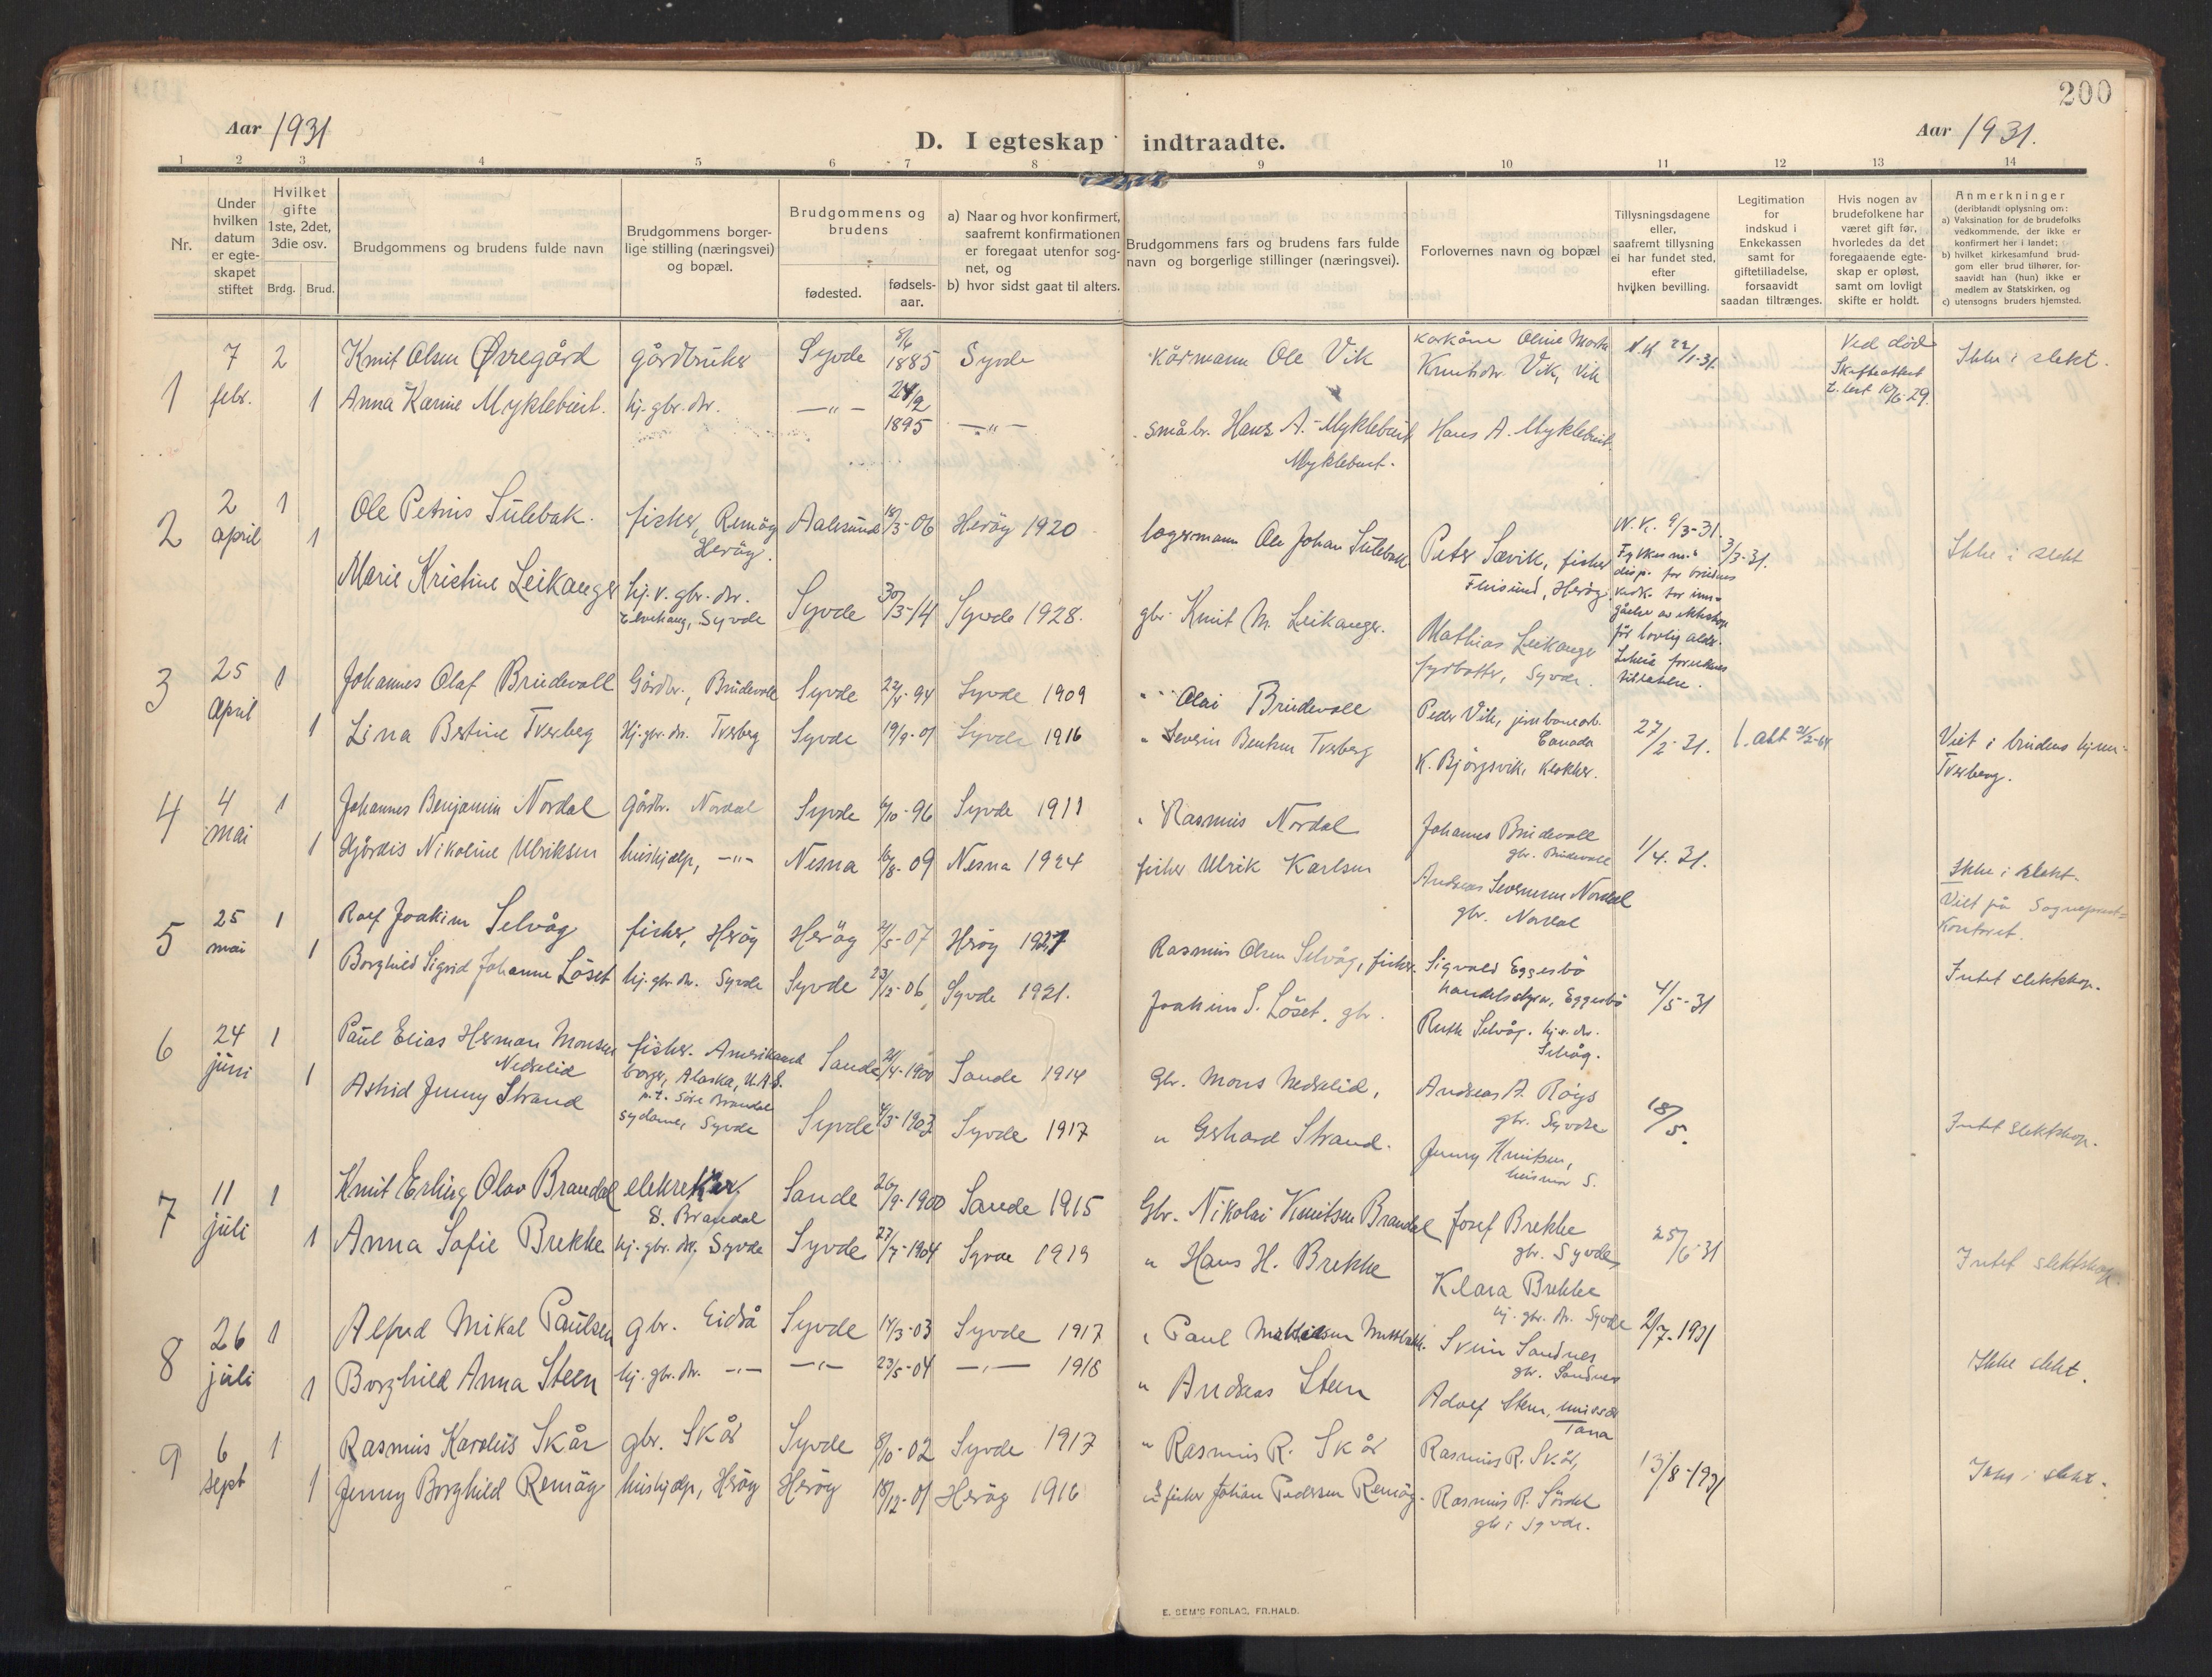 200
Aar 1931
D. I egteskap indtraadte.
Aar 1931.
1 2 3 4 5 6 7 8 9 10 11 12 13 14
Nr.
Under hvilken datum er egteskapet stiftet
Hvilket gifte 1ste, 2det, 3die osv.
Brdg. Brud.
Brudgommens og brudens fulde navn
Brudgommens borgerlige stilling (næringsvei) og bopæl.
Brudgommens og brudens
fødested.
fødselsaar.
a) Naar og hvor konfirmert, saafremt konfirmationen er foregaat utenfor sognet, og
b) hvor sidst gaat til alters.
Brudgommens fars og brudens fars fulde navn og borgerlige stillinger (næringsvei).
Forlovernes navn og bopæl
Tillysningsdagene eller, saafremt tillysning ei har fundet sted, efter hvilken bevilling.
Legitimation for indskud i Enkekassen samt for giftetilladelse, forsaavidt saadan tiltrænges.
Hvis nogen av brudefolkene har været gift før, hvorledes da det foregaaende egteskap er opløst, samt om lovligt skifte er holdt.
Anmerkninger
(deriblandt oplysning om:
a) Vaksination for de brudefolks vedkommende, der ikke er konfirmert her i landet;
b) hvilket kirkesamfund brudgom eller brud tilhører, forsaavidt han (hun) ikke er medlem av Statskirken, og
c) utensogns bruders hjemsted.
1 7 febr. 2 Knut Olsen Ørregård gårdbruker Syvde 1885 Syvde kårmann Ole Vik
Kårkåne Oline Marta Knutsdtr. Vik, Vik 22/1-31. Ved død Skifteattest Ikke i slekt.
1 Anna Karine Myklebust. hj. gbr. dtr. —"— 24/2 1895 —"— småbr. Hans A. Myklebust Myklebust. Hans A. Myklebust
2 2 april 1 Ole Petrus Sulebak. fisker, Remøy Herøy. Aalesund 18/3-06 Herøy 1920 lagermann Ole Johan Sulebak Peter Sævik, fisker Herøy N.K. 9/3-31. Ikke i slekt
1 Marie Kristine Leikanger hj.v. gbr. dtr. Syvde Syvde 30/3-14 Syvde 1928. gbr. Knut M. Leikanger. Mathias Leikanger fyrbøter, Syvde.
3 25 april 1 Johannes Olaf Brudevoll Gårdbr., Brudevoll Syvde 22/4-94 Syvde 1909 " Olai Brudevoll Peder Vik, Canada 27/2-31.
1 Lina Bertine Tverberg Hj. gbr. dtr. Tverberg Syvde 19/9-01 Syvde 1916 " Severin Bentsen Tverberg K. Bjørgsvik, klokker. Viet i brudens hjem Tverberg.
4 4 mai 1 Johannes Benjamin Nordal Gårdbr. Nordal Syvde 6/10-96 Syvde 1911 " Rasmus Nordal Johannes Brudevoll gbr. Brudevoll 1/4.31.
1 Hjørdis Nikoline Ulriksen hushjælp, —"— Nesna 16/8-09 Nesna 1924 fisker Ulrik Karlsen Andreas Severinsen Nordal gbr. Nordal Ikke i slekt. Viet på Sogneprestkontoret.
5 25 mai 1 Rolf Joakim Selvåg fisker, Herøy Herøy 2/5-07 Herøy 1927 Rasmus Olsen Selvåg, fisker. Sigvald Eggesbø handelsstyrer, Eggesbø 4/5-31 Intet slektskap.
1 Borghild Sigrid Johanne Løset hj. gbr. dtr. Syvde Syvde 23/12-06 Syvde 1921. Joakim S. Løset. gbr. Ruth Selvåg. hj.v. dtr. Selvåg.
6 24 juni 1 Paul Elias Herman Monsen Nedrelid fisker. Amerikansk borger, Alaska, U.A.S. p.t. Søre Brandal Sande 21/4-1900 Sande 1914 Gbr. Mons Nedrelid, Andreas A. Røys gbr. Syvde 18/5.
1 Astrid Jenny Strand sydame, Syvde Syvde 4/3-1903 Syvde 1917 " Gerhard Strand. Jenny Knutsen, husmor S. Intet slektskap.
7 11 juli 1 Knut Erling Olav Brandal S. Brandal Sande 26/9-1900 Sande 1915 Gbr. Nikolai Knutsen Brandal Josef Brekke gbr. Syvde 25/6-31
1 Anna Sofie Brekke hj. gbr. dtr. Syvde Syvde 27/7-1904 Syvde 1919 " Hans H. Brekke Klara Brekke hj. gbr. dtr. Syvde Intet slektskap.
8 26 juli 1 Alfred Mikal Paulsen gbr. Eidså Syvde 14/3-03 Syvde 1917 " Paul Svein Sandnes gbr. Sandnes 2/7-1931
1 Borghild Anna Steen hj. gbr. dtr. —"— —"— 23/5-04 —"— 1918 " Andreas Steen Adolf Steen, Tana Ikke slekt.
9 6 sept 1 Rasmus Karolus Skår gbr. Skår Syvde 8/10-02 Syvde 1917 " Rasmus R. Skår Rasmus R. Skår, 13/8-1931
1 Jenny Borghild Remøy hushjælp, Herøy Herøy 18/12-01 Herøy 1916 fisker Johan Pedersen Remøy. Rasmus R. Sørdal gbr i Syvde. Ikke i slekt.
E. SEM'S FORLAG, FR.HALD.